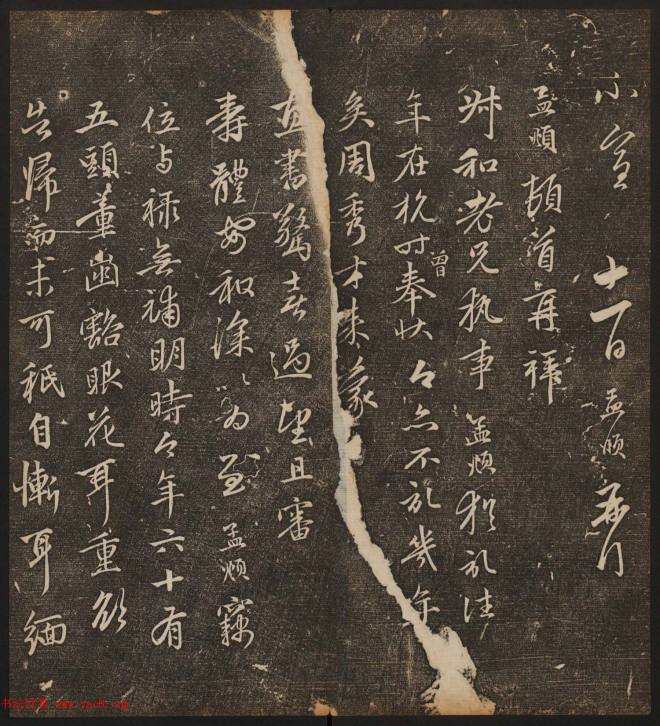 不宣 十一日 孟頫 再拜
孟頫頓首再拜
叔和老兄執事 孟頫猶記往
年在杭時曾奉狀今亦不記幾年
矣周秀才來蒙
惠書驚喜過望且審
壽體安和深以為慰 孟頫竊
位与祿無補明時今年六十有
五頭童齒豁眼花耳重欲
告歸而未可秪自慚耳緬
书法欣赏 www.yac8.com